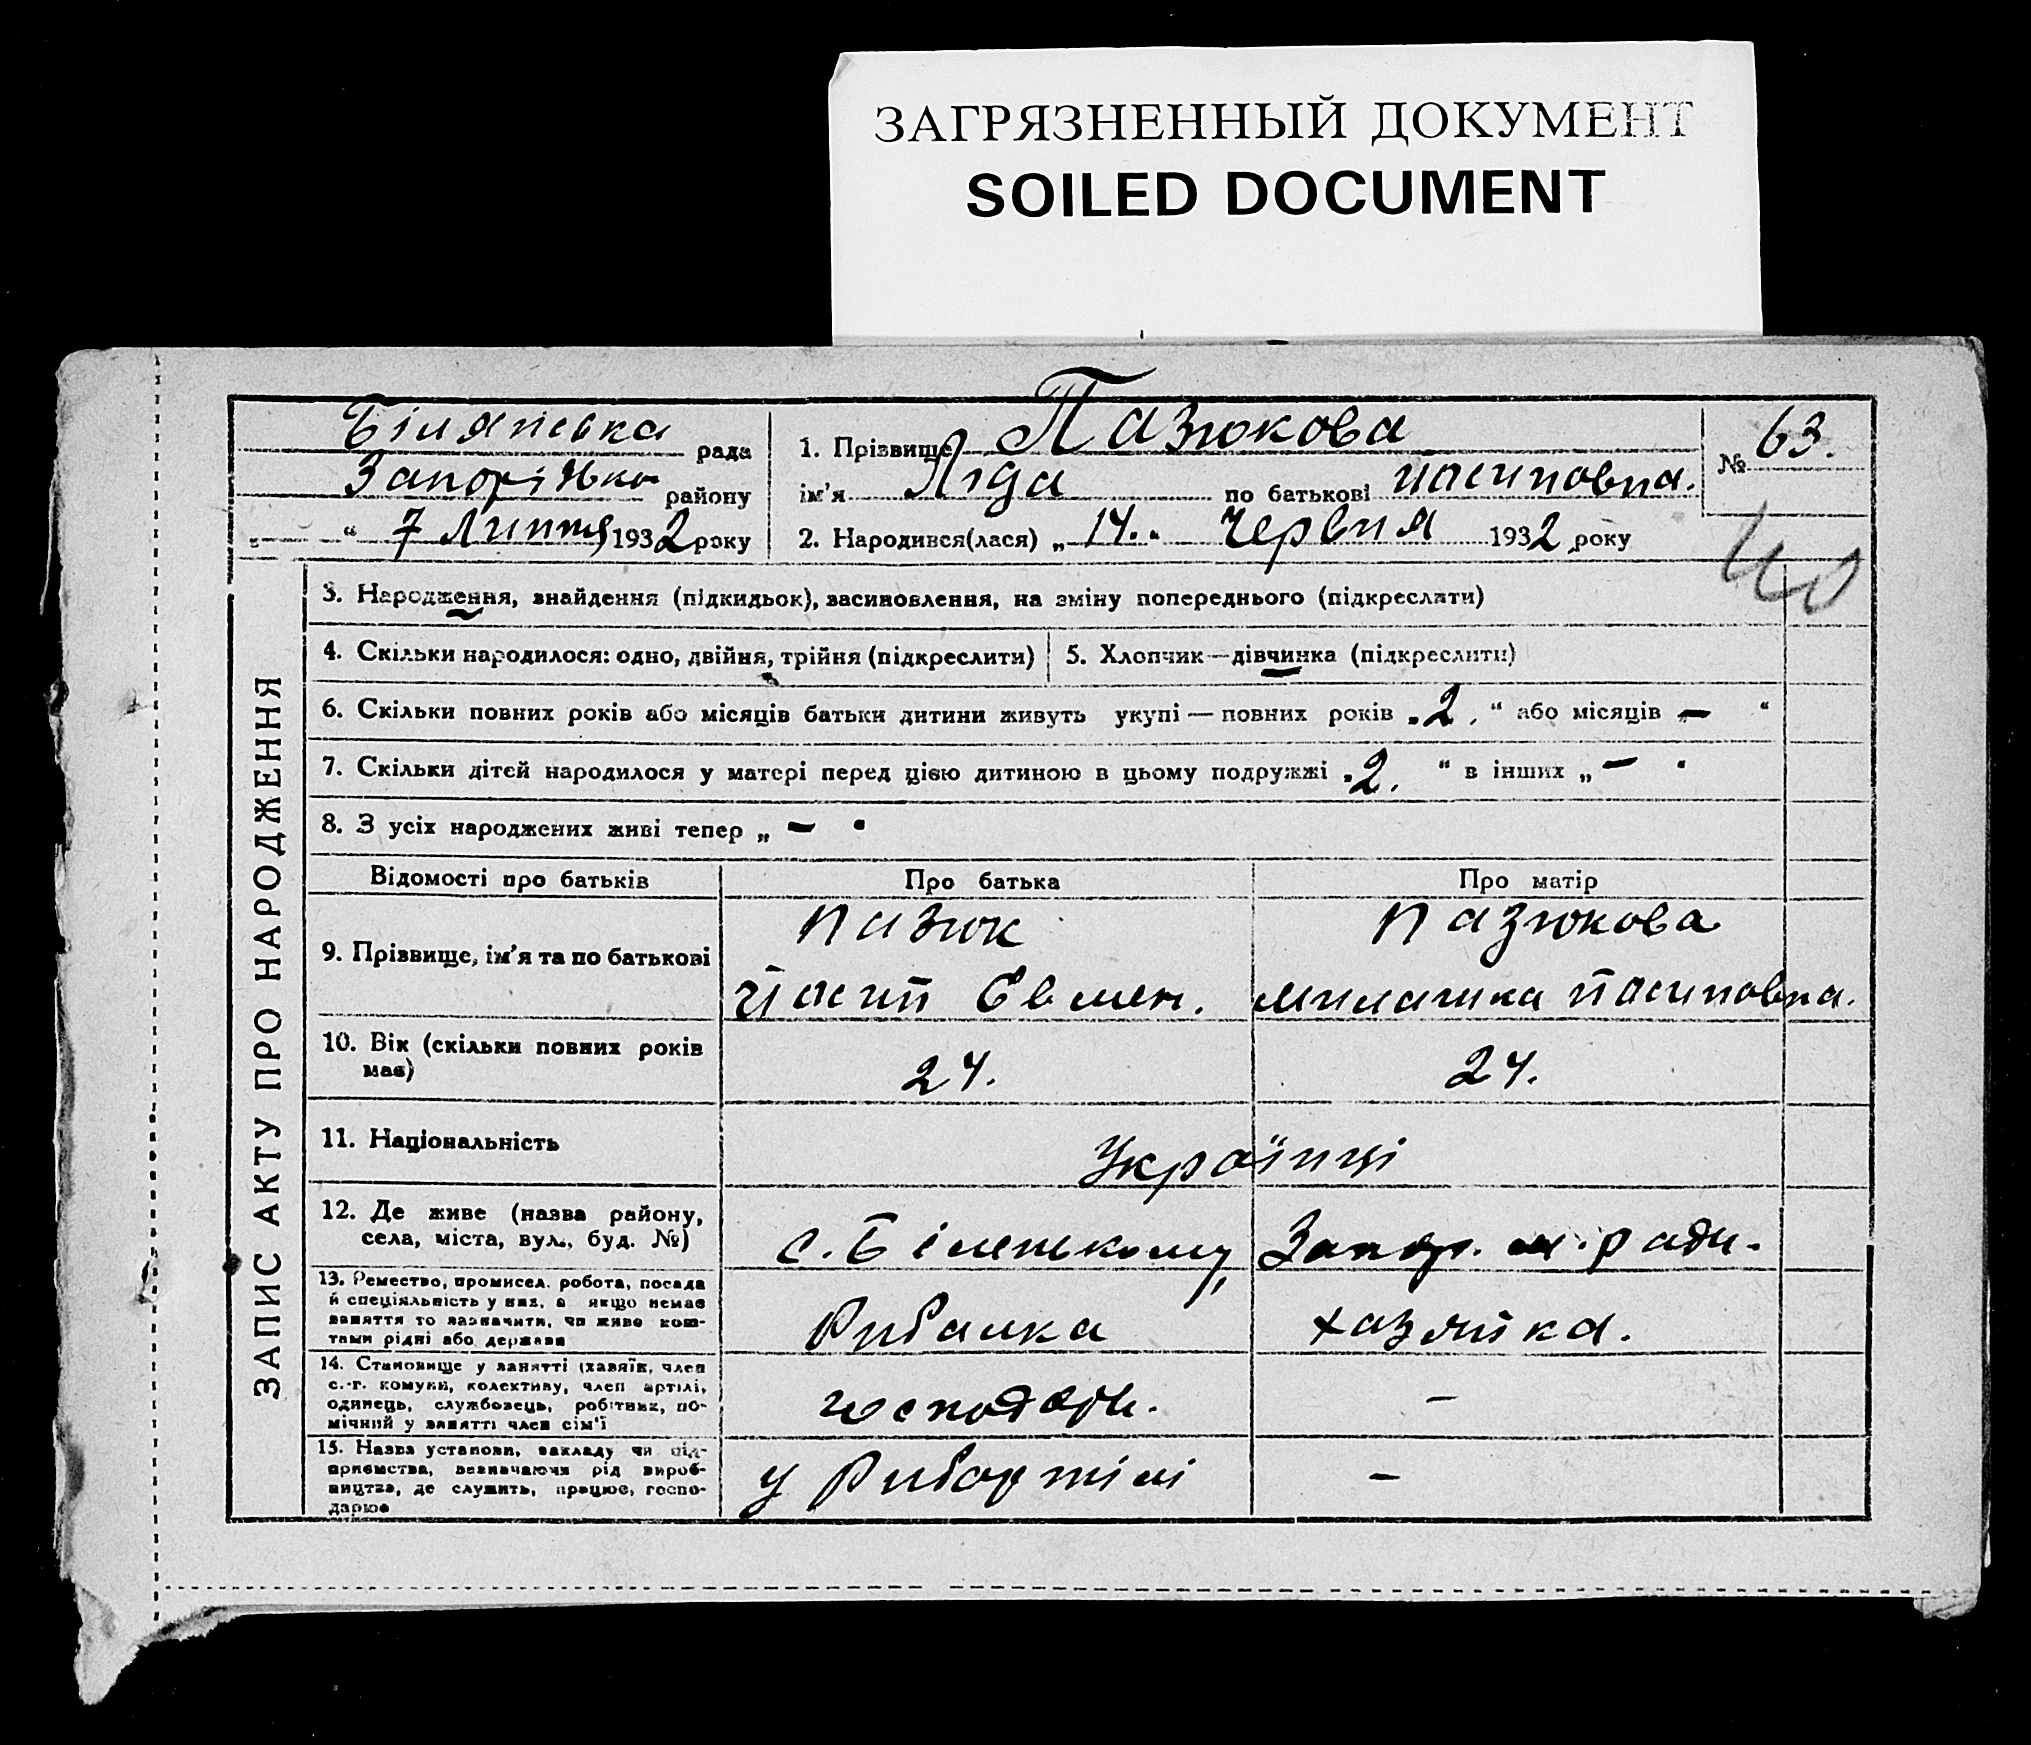 ЗАГРЯЗНЕННЫЙ ДОКУМЕНТ
SOILED DOCUMENT
ЗАПИС АКТУ ПРО НАРОДЖЕННЯ
рада
району
" 7 Липня 1932 року
1. Прізвище Пазюкова
ім'я Ліда по батькові Йосиповна.
2. Народився(лася) „ 14. " Червня 1932 року
№ 63.
40
3. Народження, знайдення (підкидьок), засиновлення, на зміну попереднього (підкреслити)
4. Скільки народилося: одно, двійня, трійня (підкреслити)
5. Хлопчик—дівчинка (підкреслити)
6. Скільки повних років або місяців батьки дитини живуть укупі — повних років „ 2. " або місяців „ — "
7. Скільки дітей народилося у матері перед цією дитиною в цьому подружжі „ 2. " в інших „ — "
8. З усіх народжених живі тепер „ — "
Відомості про батьків
Про батька
Про матір
9. Прізвище, ім'я та по батькові
Пазюк
Йосип Євмен.
Пазюкова
Йосиповна.
10. Вік (скільки повних років
має)
24.
24.
11. Національність
Українці
12. Де живе (назва району,
села, міста, вул., буд. №)
с. Біленькому,
Запор. м. ради.
13. Ремество, промисел. робота, посада
й спеціяльність у них, а якщо немає
заняття то зазначити, чи живе кош-
тами рідні або держави
Рибалка
хазяйка.
14. Становище у занятті (хазяїн, член
с.-г. комуни, колективу, член артілі,
одинець, службовець, робітник, по-
мічний у занятті член сім'ї
господарь.
—
15. Назва установи, закладу чи під-
приємства, зазначаючи рід вироб-
ництва, де служить, працює, госпо-
дарює
у Рибартілі
—